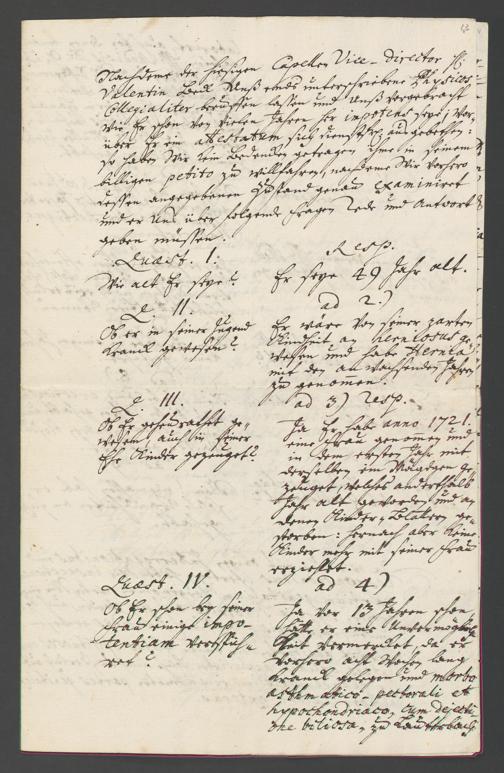 Nachdeme der hiesigen Capellen Vice-director H:
Valentin Unß ends unterschriebene Physicos
Collegialiter lassen und Unß vorgebracht
wie Er schon von vielen Jahren her impotens seye, vor,
über Er ein attestatum sich dienstl. ausgebethen:
so haben Wir kein Bedencken getragen ihme in seinem
billigen petito zu willfahren, nachdeme Wir vorhero
dessen angegebenen Zustand genau examiniret
und er Uns über folgende fragen Rede und Antwort
geben müssen.
Quæst. I.
Wie alt Er seye?
Resp.
Er seye 49 Jahr alt.
Q. II.
Ob er in seiner Jugend
Kranck gewesen?
ad 2.)
Er wäre von seiner zarten
Kindheit an herniosus ge,
wesen und habe Hernia
mit den anwachsenden Jahren
zu genommen.
Q. III.
Ob Er geheurathet ge,
wesen, auch in seiner
Ehe Kinder gezeuget?
ad 3) resp.
Ja Er habe anno 1721.
eine Frau genommen und
in dem ersten Jahr mit
derselben ein Mägdgen ge,
zeuget, welches anderthalb
Jahr alt geworden und an
denen Kinder-Blatern ge,
storben: hernach aber keine
Kinder mehr mit seiner Frau
erziehlet.
Quæst. IV.
Ob Er schon bey seiner
Frau einige impo-
tentiam verspüh-
ret?
ad 4)
Ja vor 13 Jahren schon
hätte er eine Unvermög
keit vermercket, da er
vorhero acht Wochen lang
Kranck gelegen und morbo
asthmatico-pectorali et
hypochondriaco, cum dejecti-
one biliosa, zu Lauterbach